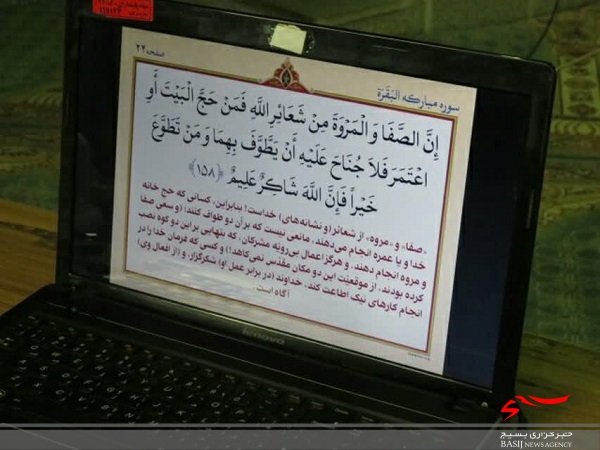 سوره مبارکه البَقَرَة
صفحه ۲۴
إِنَّ الصَّفَا وَ الْمَرْوَةَ مِنْ شَعَائِرِ اللَّهِ فَمَنْ حَجَّ الْبَيْتَ أَوِ
اعْتَمَرَ فَلاَ جُنَاحَ عَلَيْهِ أَنْ يَطَّوَّفَ بِهِمَا وَ مَنْ تَطَوَّعَ
خَيْراً فَإِنَّ اللَّهَ شَاكِرٌ عَلِيمٌ ﴿۱۵۸﴾
«صفا» و «مروه» از شعائر (و نشانه‌های) خداست! بنابراین، کسانی که حج خانه
خدا و یا عمره انجام می‌دهند، مانعی نیست که بر آن دو طواف کنند؛ (و سعی صفا
و مروه انجام دهند. و هرگز اعمال بی‌رویّه مشرکان، که بتهایی بر این دو کوه نصب
کرده بودند، از موقعیّت این دو مکان مقدّس نمی‌کاهد!) و کسی که فرمان خدا را در
انجام کارهای نیک اطاعت کند، خداوند (در برابر عمل او) شکرگزار، و (از افعال وی)
آگاه است.
lenovo
خبرگزاری بسیج
BASIJ NEWS AGENCY